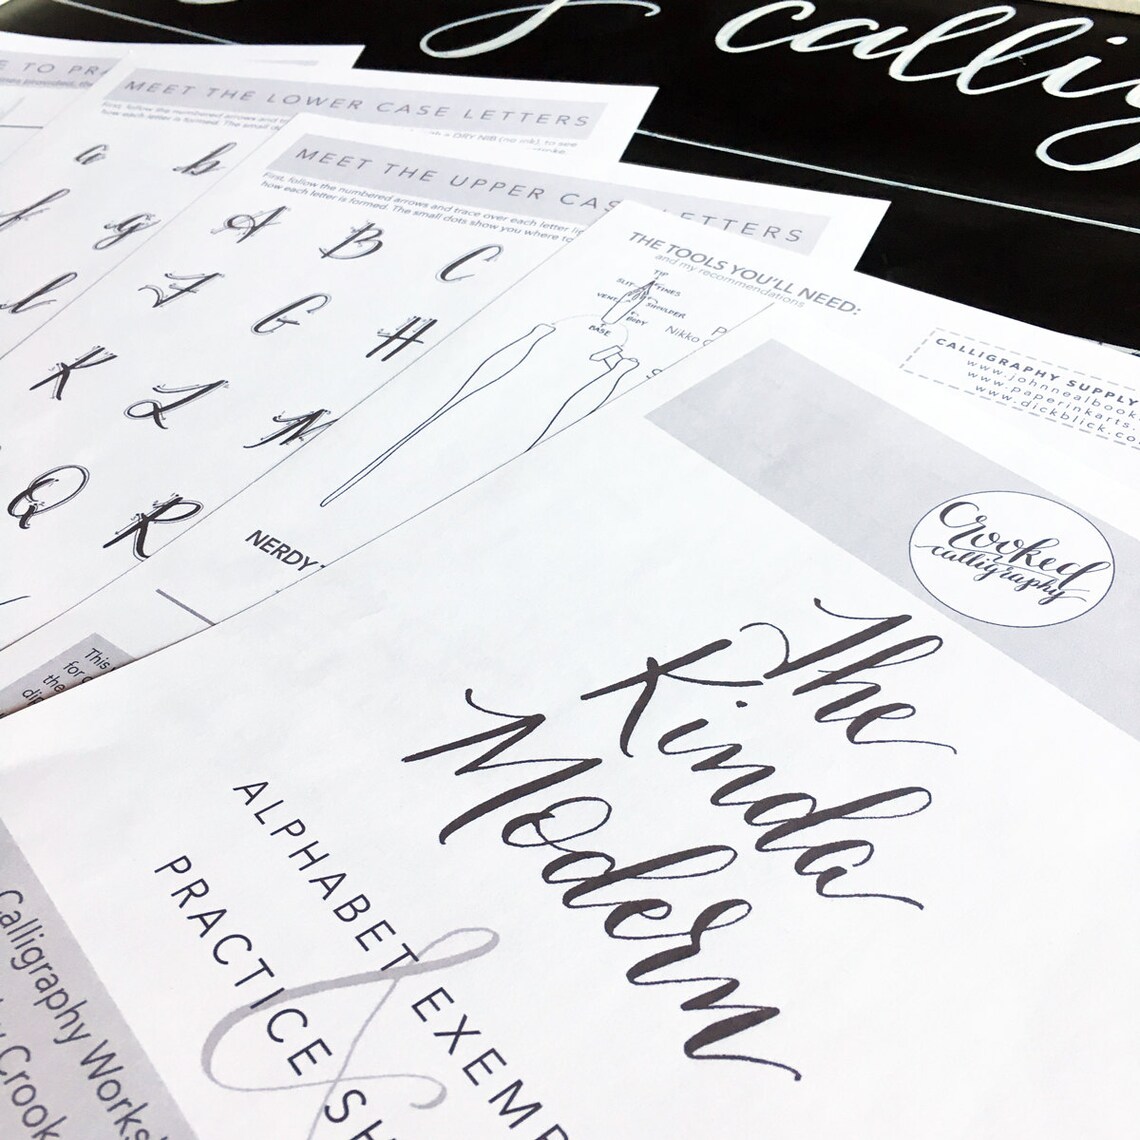 calli
TO
MEET THE LOWER CASE LETTERS
First, follow the numbered arrows and
with a DRY NIB (no ink), to see
how each letter is formed. The small
a b
g
MEET THE UPPER CASE LETTERS
First, follow the numbered arrows and trace over each letter
how each letter is formed. The small dots show you where to
A B C
F G H
K L M
Q R
THE TOOLS YOU'LL NEED:
and my recommendations
TIP
SLIT TINES
VENT SHOULDER
BODY
BASE
Nikko
NERDY
CALLIGRAPHY SUPPLY
www.johnnealbook
www.paperinkarts.
www.dickblick.co
Crooked
calligraphy
The
Kinda
Modern
ALPHABET EXEMP
&
PRACTICE SH
This
for
the
Calligraphy Works
Crook